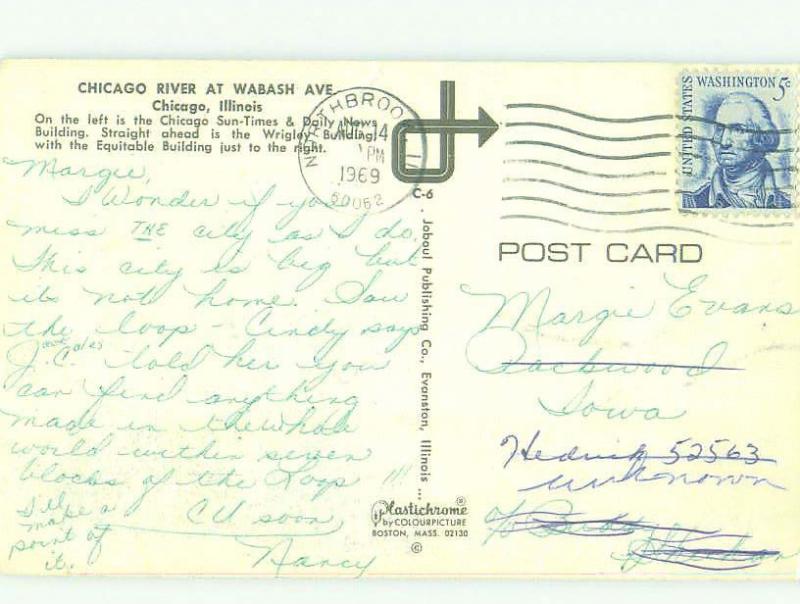 CHICAGO RIVER AT WABASH AVE.
Chicago, Illinois
On the left is the Chicago Sun-Times & Daily News
Building. Straight ahead is the Wrigley Building,
with the Equitable Building just to the right.
Margie,
I Wonder if you
miss THE city as I do.
This city is big but
its not home. Saw
the loop - Cindy says
J.C. told her you
can find anything
made in the whole
world within seven
blocks of the Loop !!!
CU soon,
Nancy
I'll
make a
point of
it.
NORTHBROOK
AUG 14
PM
1969
60062
C-6
Joboul Publishing Co., Evanston, Illinois ...
Plastichrome®
by COLOURPICTURE
BOSTON, MASS. 02130
©
UNITED STATES
WASHINGTON 5c
POST CARD
Margie Evans
Packwood
Iowa
Hedrick 52563
unknown